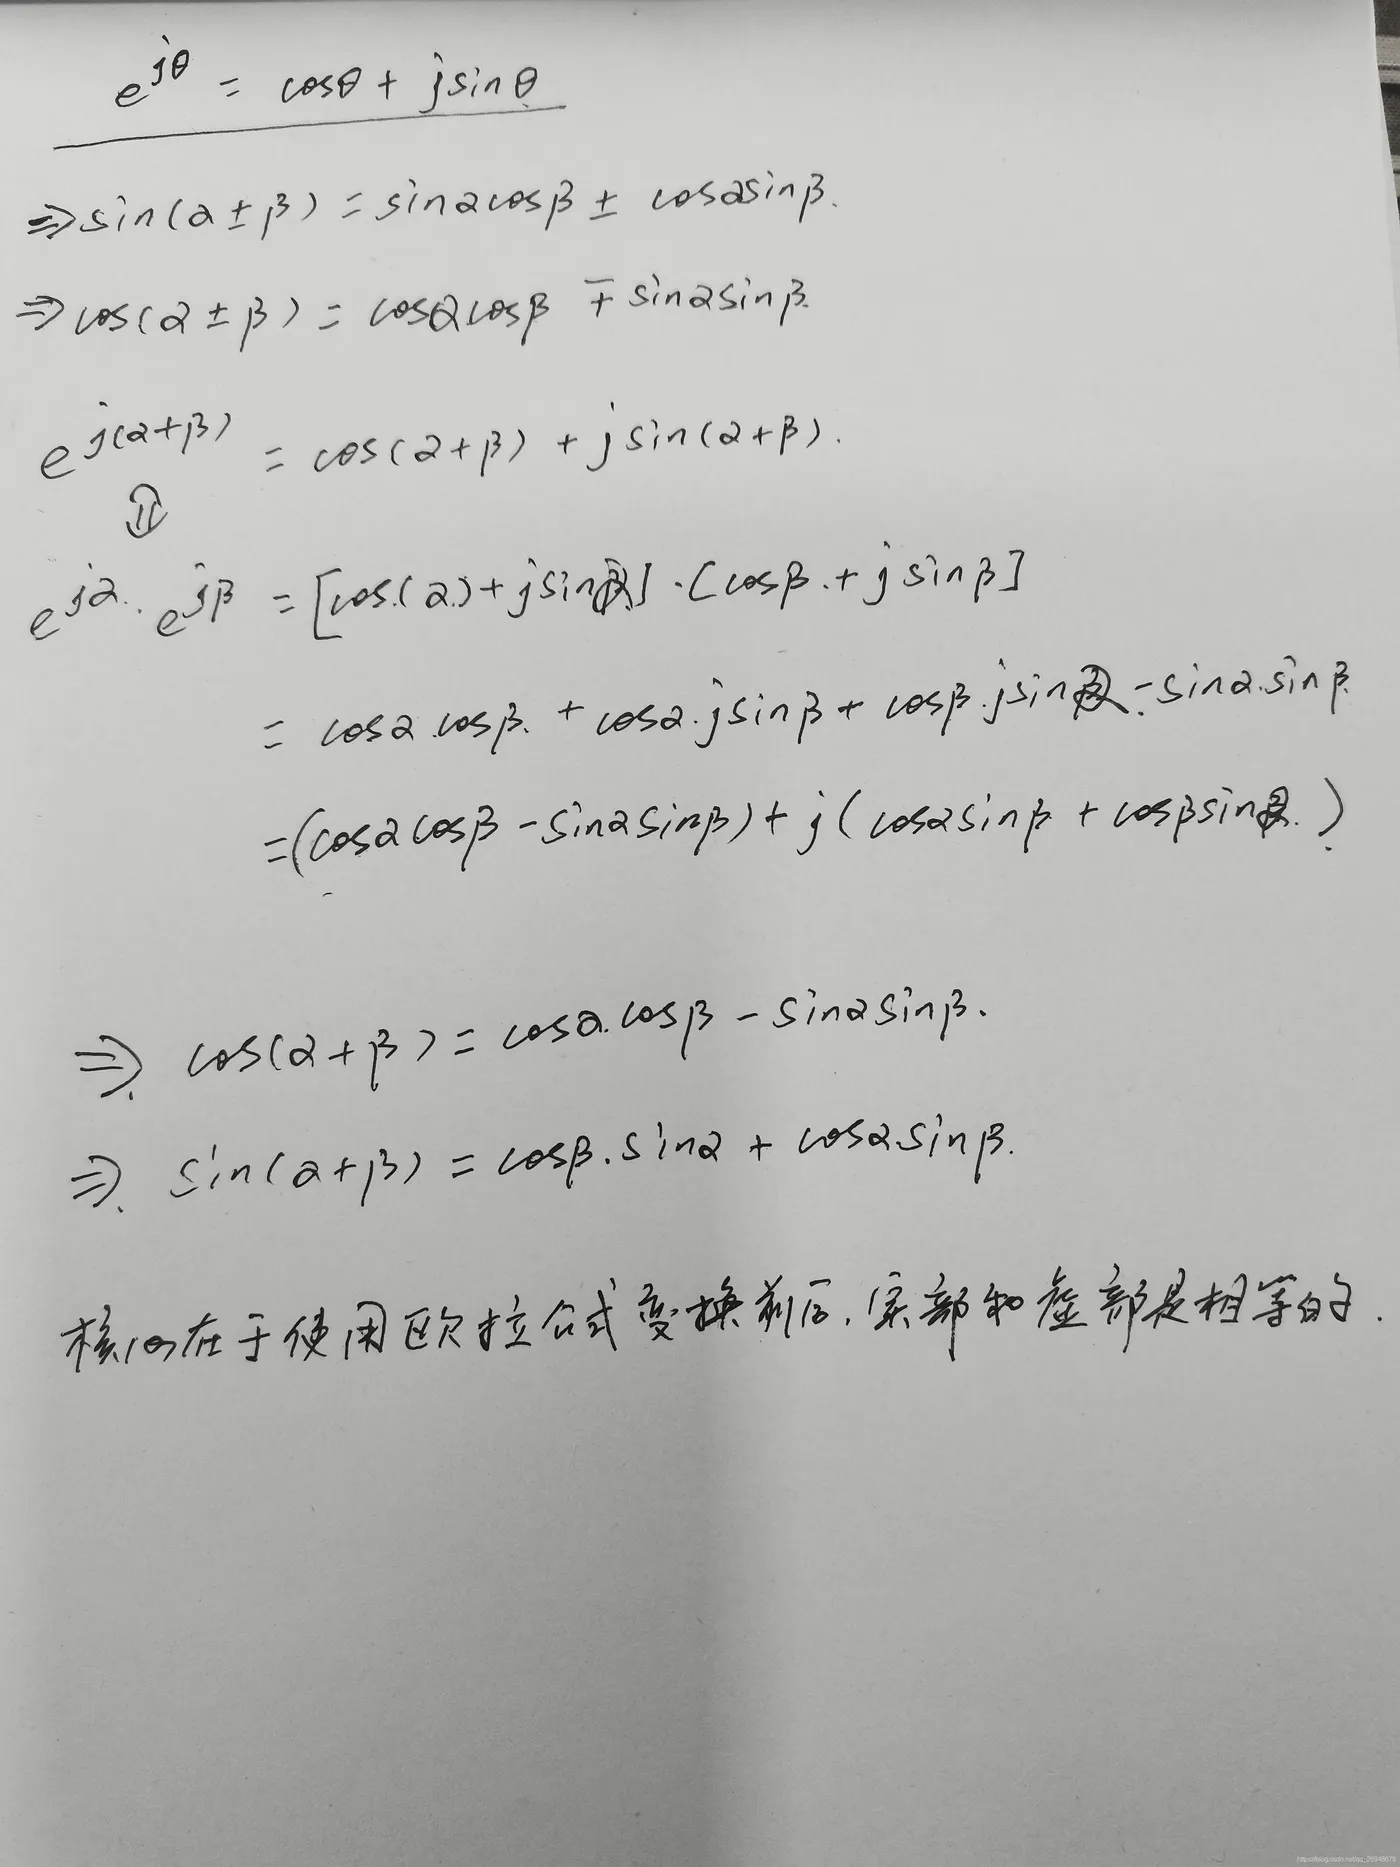 e^{jθ} = cosθ + jsinθ
⇒ sin(α ± β) = sinαcosβ ± cosαsinβ.
⇒ cos(α ± β) = cosαcosβ ∓ sinαsinβ.
e^{j(α+β)} = cos(α+β) + jsin(α+β).
⇓
e^{jα} · e^{jβ} = [cos(α) + jsinα] · [cosβ + jsinβ]
= cosα·cosβ + cosα·jsinβ + cosβ·jsinα - sinα·sinβ
= (cosαcosβ - sinαsinβ) + j(cosαsinβ + cosβsinα)
⇒ cos(α+β) = cosα·cosβ - sinαsinβ.
⇒ sin(α+β) = cosβ·sinα + cosα·sinβ.
核心在于使用欧拉公式变换前后,实部和虚部是相等的.